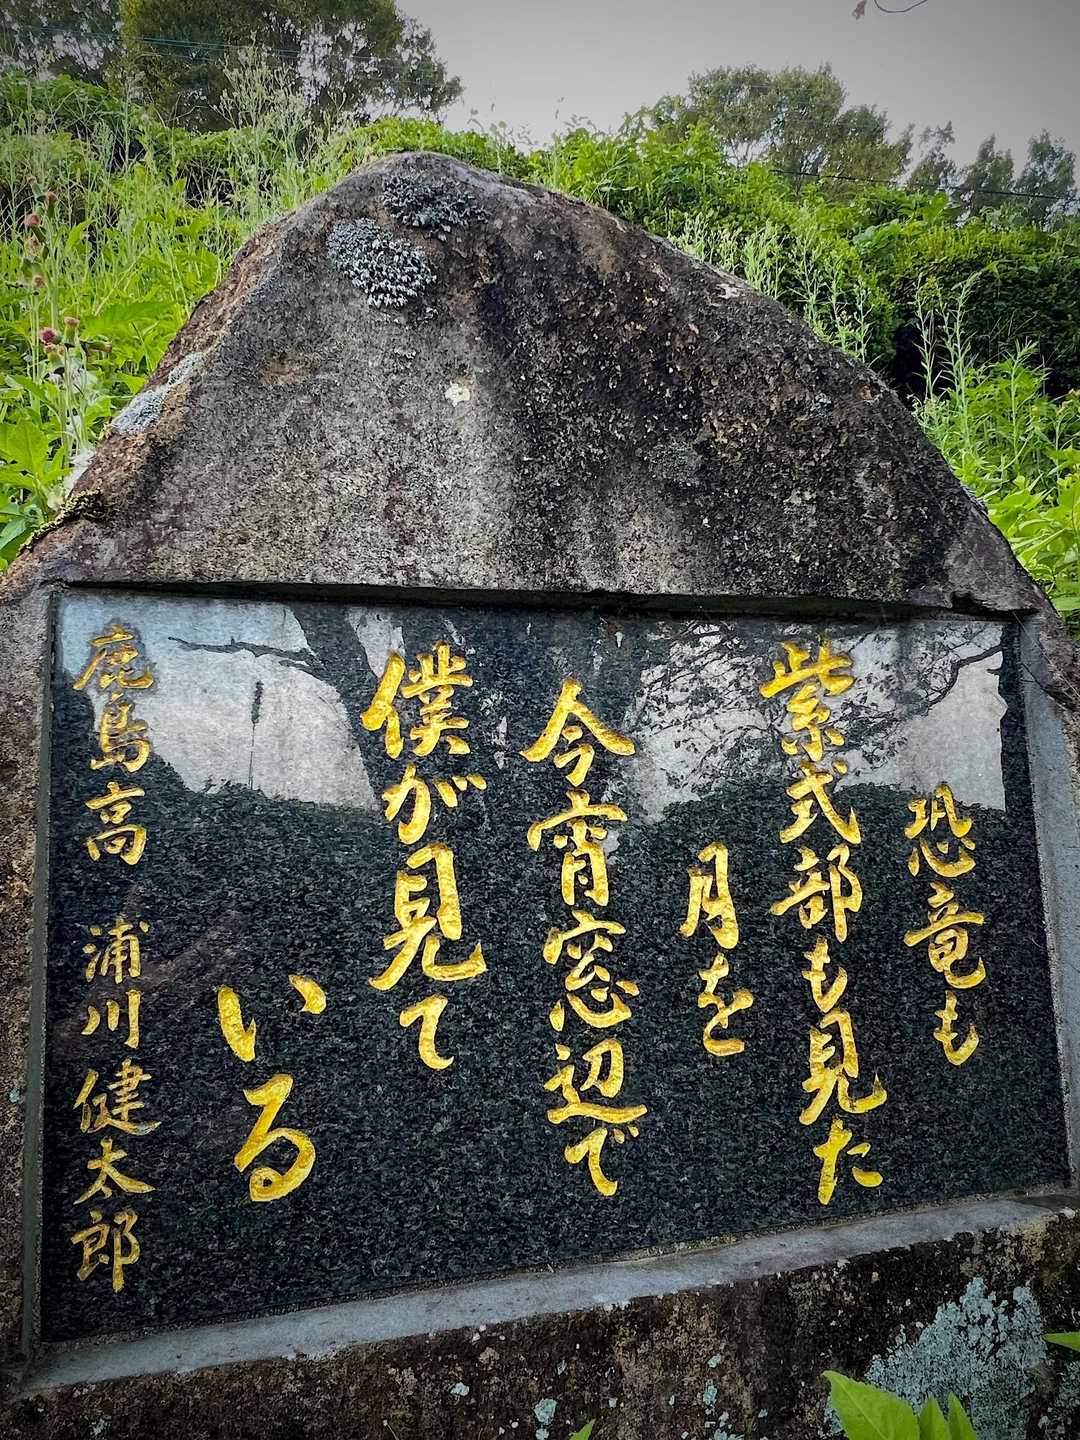 恐竜も
紫式部も見た
月を
今宵窓辺で
僕が見て
いる
鹿島高 浦川健太郎